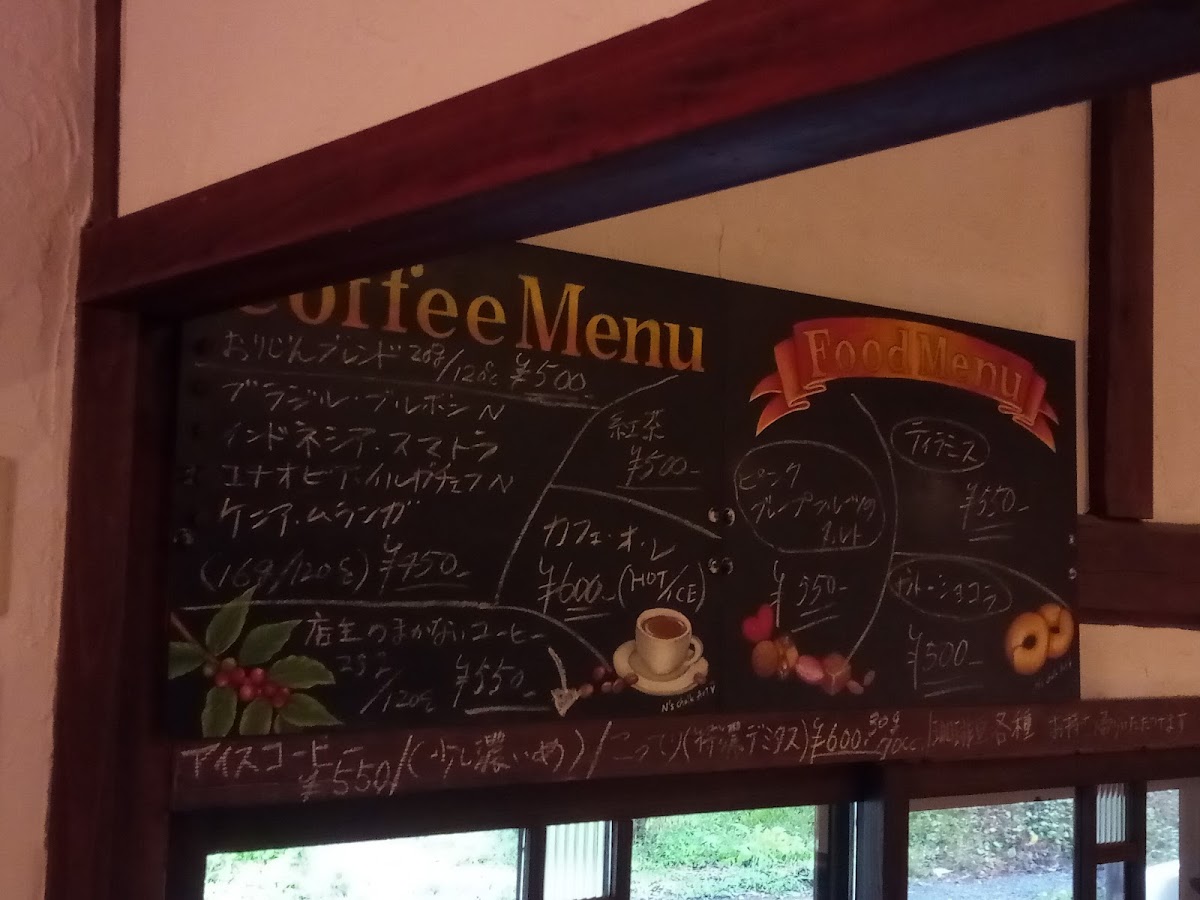 Coffee Menu
おりじんブレンド 20g/120cc ¥500-
ブラジル・ブルボンN
インドネシア・スマトラ
エチオピア・イルガチェフN
ケニア・ムランガ
(16g/120cc) ¥450-
店主のまかないコーヒー
25g/120cc ¥550-
紅茶
¥500-
カフェ・オ・レ
¥600-(HOT/ICE)
N's Chalk Art
Food Menu
ピンク
グレープフルーツの
タルト
¥550-
ティラミス
¥550-
ガトーショコラ
¥500-
N's Chalk Art
アイスコーヒー ¥550/(少し濃いめ)/こってり(特濃デミタス)¥600- 30g/70cc
各種 お持ち帰りいただけます